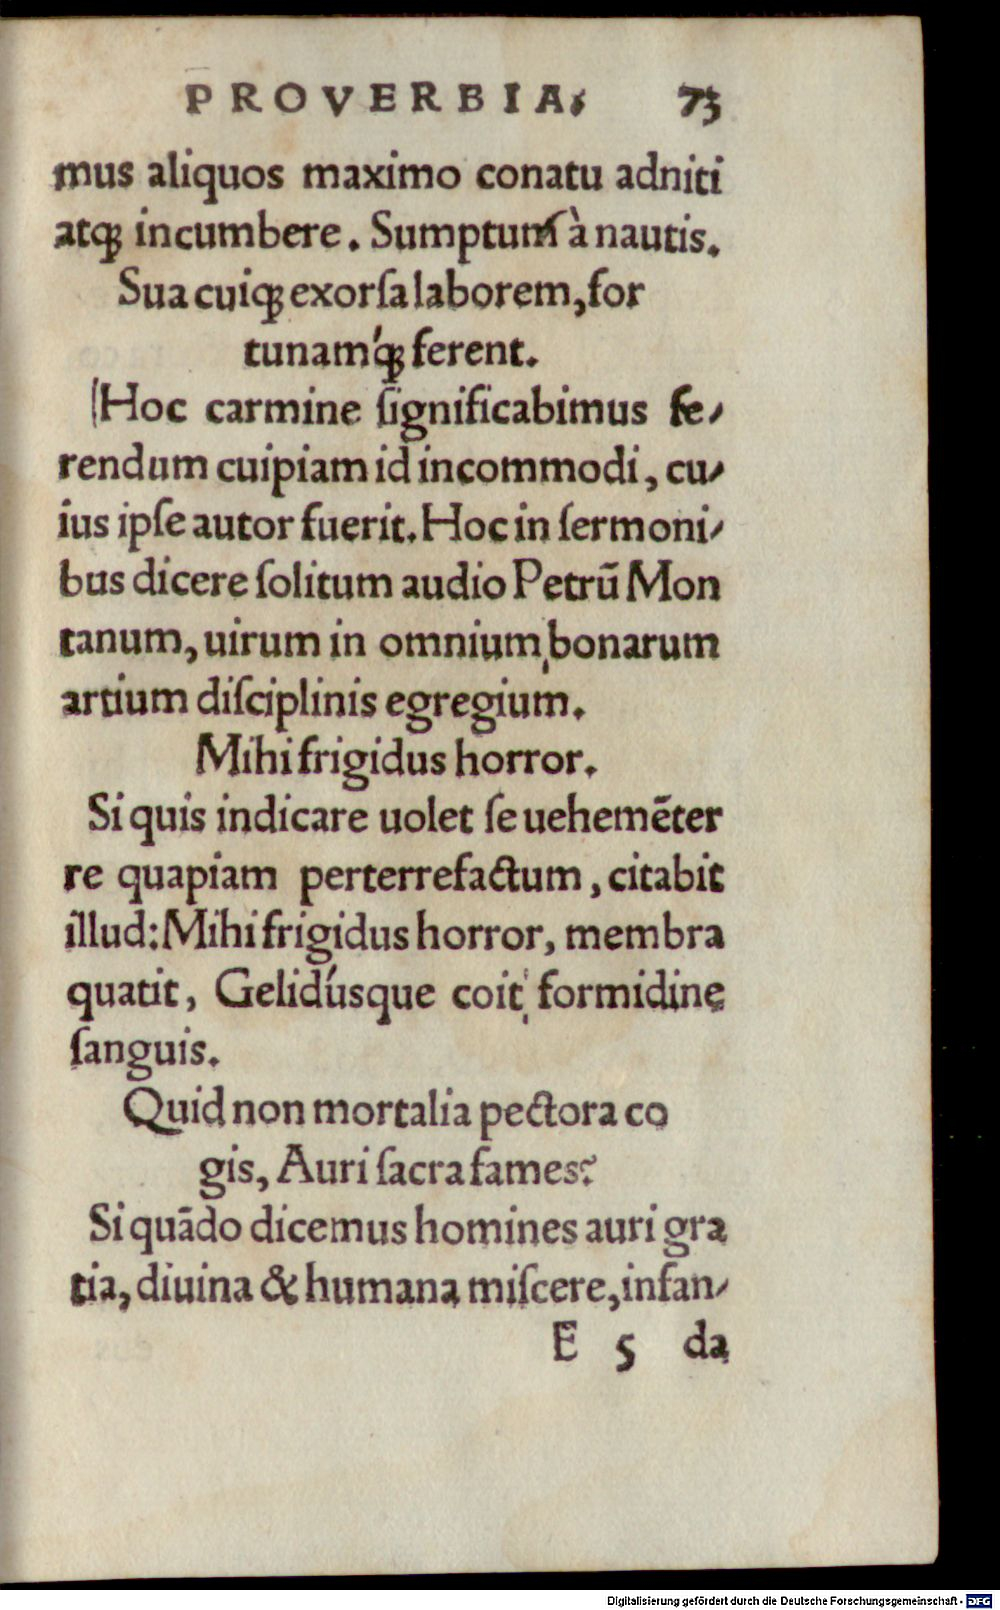 PROVERBIA. 73
mus aliquos maximo conatu adniti
atq; incumbere. Sumptum à nautis.
Sua cuiq; exorſa laborem, for
tunamq́; ferent.
Hoc carmine ſignificabimus fe-
rendum cuipiam id incommodi, cu-
ius ipſe autor fuerit. Hoc in ſermoni-
bus dicere ſolitum audio Petrū Mon
tanum, uirum in omnium bonarum
artium diſciplinis egregium.
Mihi frigidus horror.
Si quis indicare uolet ſe uehemēter
re quapiam perterrefactum, citabit
illud: Mihi frigidus horror, membra
quatit, Gelidúsque coit formidine
ſanguis.
Quid non mortalia pectora co
gis, Auri ſacra fames?
Si quādo dicemus homines auri gra
tia, diuina & humana miſcere, infan-
E 5 da
Digitalisierung gefördert durch die Deutsche Forschungsgemeinschaft - DFG